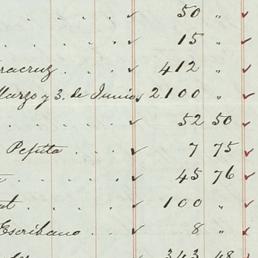 50 "
15 "
racruz . . 412 "
Marzo y 3. de Junio 2100 "
52 50
Pepita . . 7 75
45 76
100 "
Escribano . . 8 "
343 48